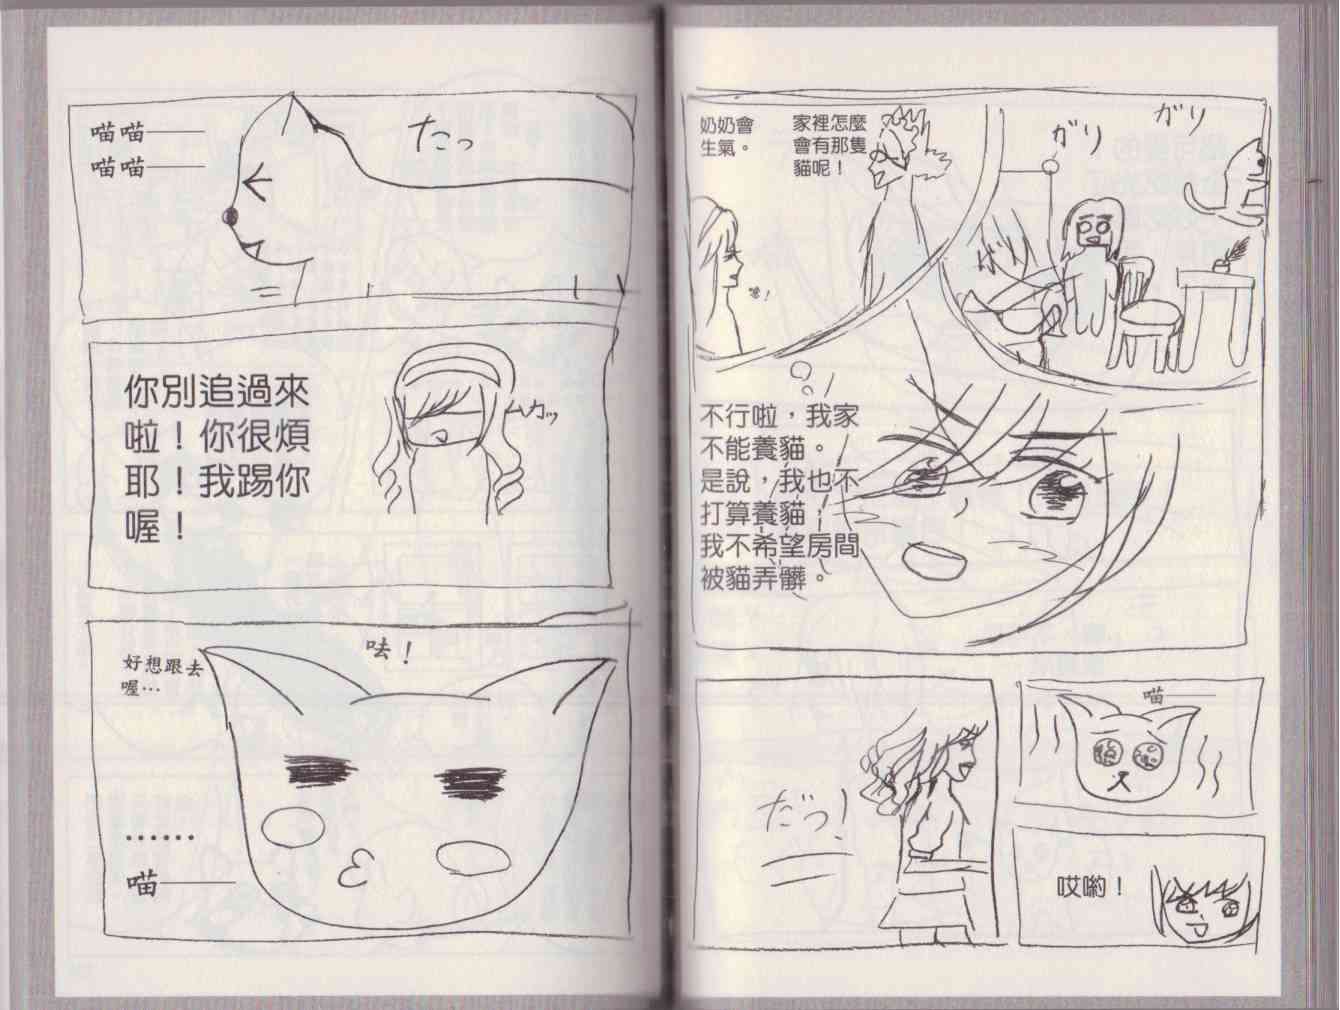 ガリ
ガリ
ガリ
家裡怎麼
會有那隻
貓呢！
奶奶會
生氣。
不行啦，我家
不能養貓。
是說，我也不
打算養貓；
我不希望房間
被貓弄髒。
喵——
哎喲！
だっ！
だっ
喵喵——
喵喵——
你別追過來
啦！你很煩
耶！我踢你
喔！
ムカッ
呿！
好想跟去
喔…
……
喵——